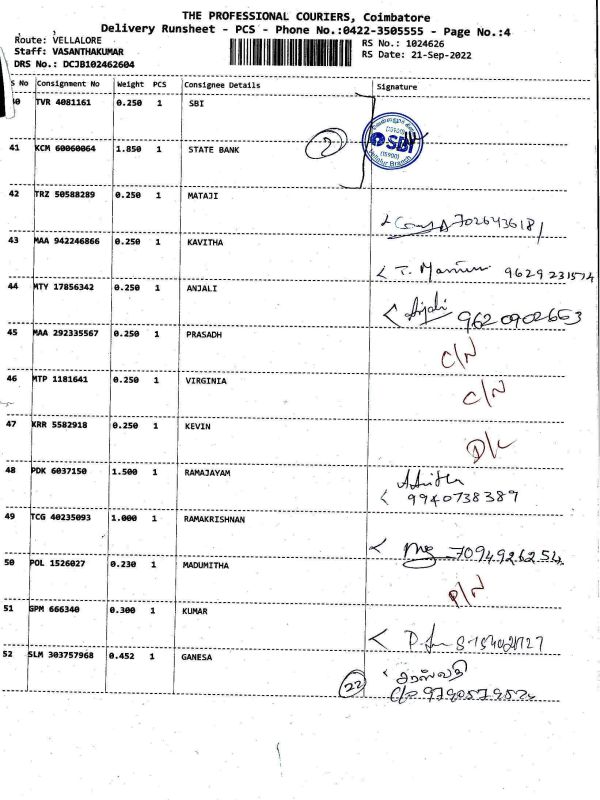 THE PROFESSIONAL COURIERS, Coimbatore
Delivery Runsheet - PCS - Phone No.:0422-3505555 - Page No.:4
Route: VELLALORE
RS No.: 1024626
Staff: VASANTHAKUMAR
RS Date: 21-Sep-2022
DRS No.: DCJB102462604
S No Consignment No Weight PCS Consignee Details Signature
40 TVR 4081161 0.250 1 SBI
SBI
41 KCM 60060064 1.850 1 STATE BANK
2
42 TRZ 50588289 0.250 1 MATAJI
7026436181
43 MAA 942246866 0.250 1 KAVITHA
9629231574
44 MTY 17856342 0.250 1 ANJALI
Anjali 9620902653
45 MAA 292335567 0.250 1 PRASADH
C/N
46 MTP 1181641 0.250 1 VIRGINIA
C/N
47 KRR 5582918 0.250 1 KEVIN
D/L
48 PDK 6037150 1.500 1 RAMAJAYAM
9940738389
49 TCG 40235093 1.000 1 RAMAKRISHNAN
7094926254
50 POL 1526027 0.230 1 MADUMITHA
P/N
51 GPM 666340 0.300 1 KUMAR
52 SLM 303757968 0.452 1 GANESA
22
சரஸ்வதி